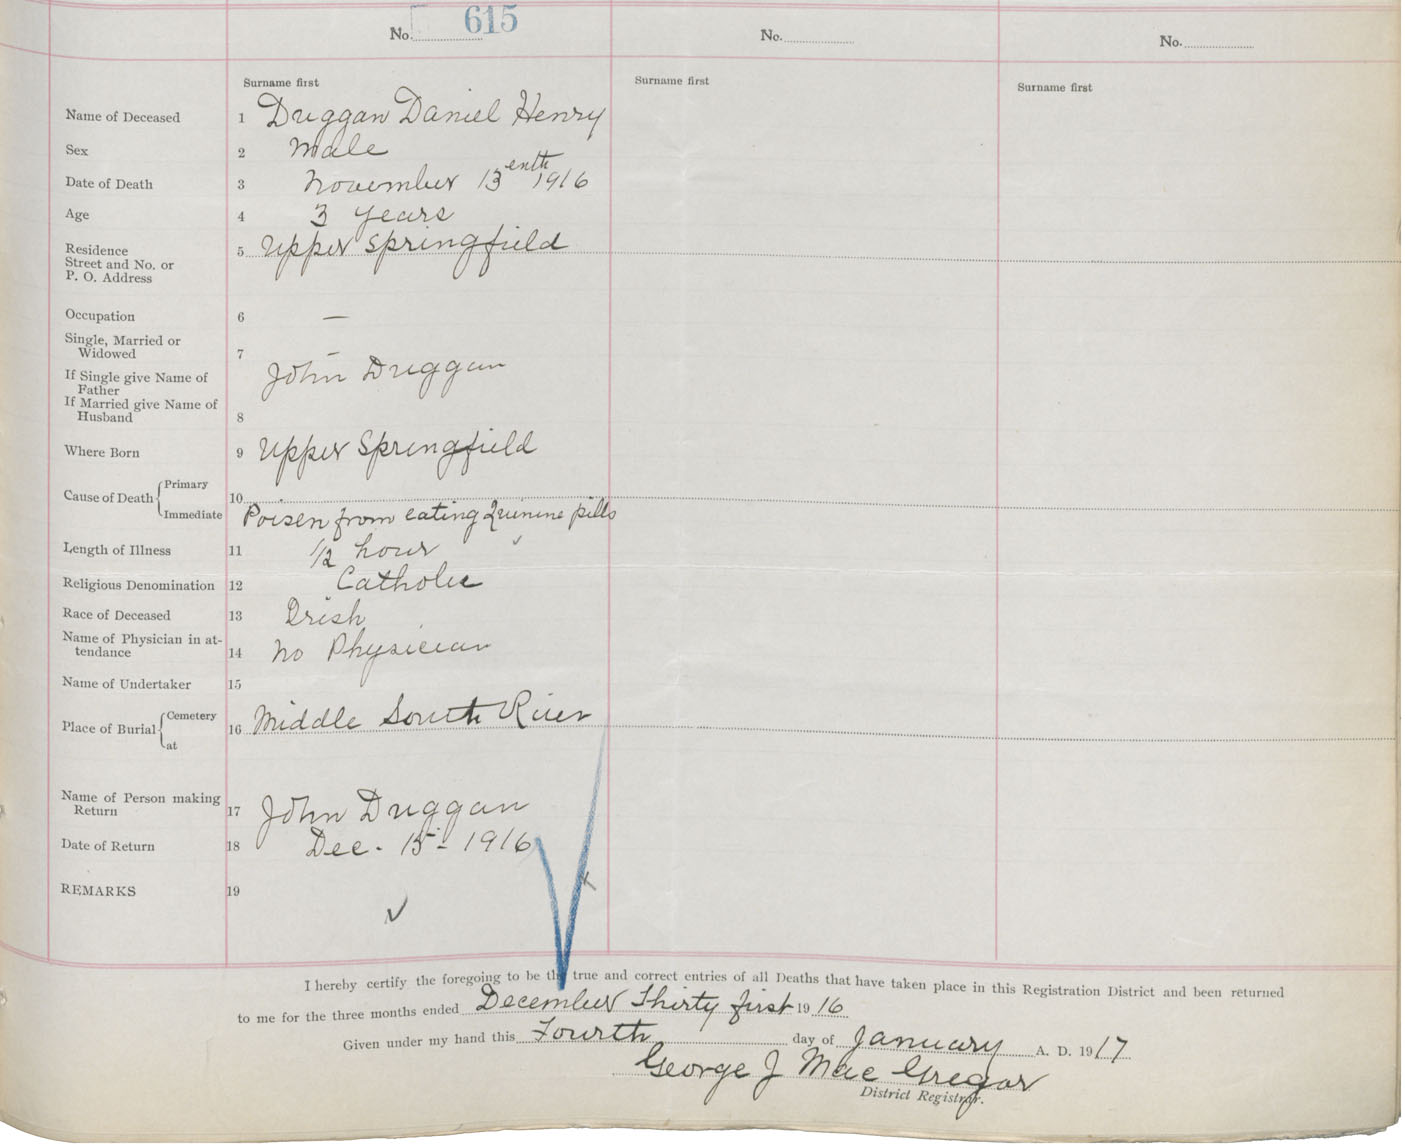 No. 615
No.
No.
Surname first
Surname first
Surname first
Name of Deceased 1 Duggan Daniel Henry
Sex 2 Male
Date of Death 3 November 13enth 1916
Age 4 3 years
Residence
Street and No. or
P. O. Address 5 Upper Springfield
Occupation 6 —
Single, Married or
Widowed 7 —
If Single give Name of
Father John Duggan
If Married give Name of
Husband 8
Where Born 9 Upper Springfield
Cause of Death Primary 10
Immediate Poisen from eating Quinine pills
Length of Illness 11 1/2 hour
Religious Denomination 12 Catholic
Race of Deceased 13 Irish
Name of Physician in at-
tendance 14 No Physician
Name of Undertaker 15
Place of Burial Cemetery
at 16 Middle South River
Name of Person making
Return 17 John Duggan
Date of Return 18 Dec. 15 - 1916
REMARKS 19
I hereby certify the foregoing to be the true and correct entries of all Deaths that have taken place in this Registration District and been returned
to me for the three months ended December Thirty first 1916
Given under my hand this Fourth day of January A. D. 1917
George J Mac Gregor
District Registrar.